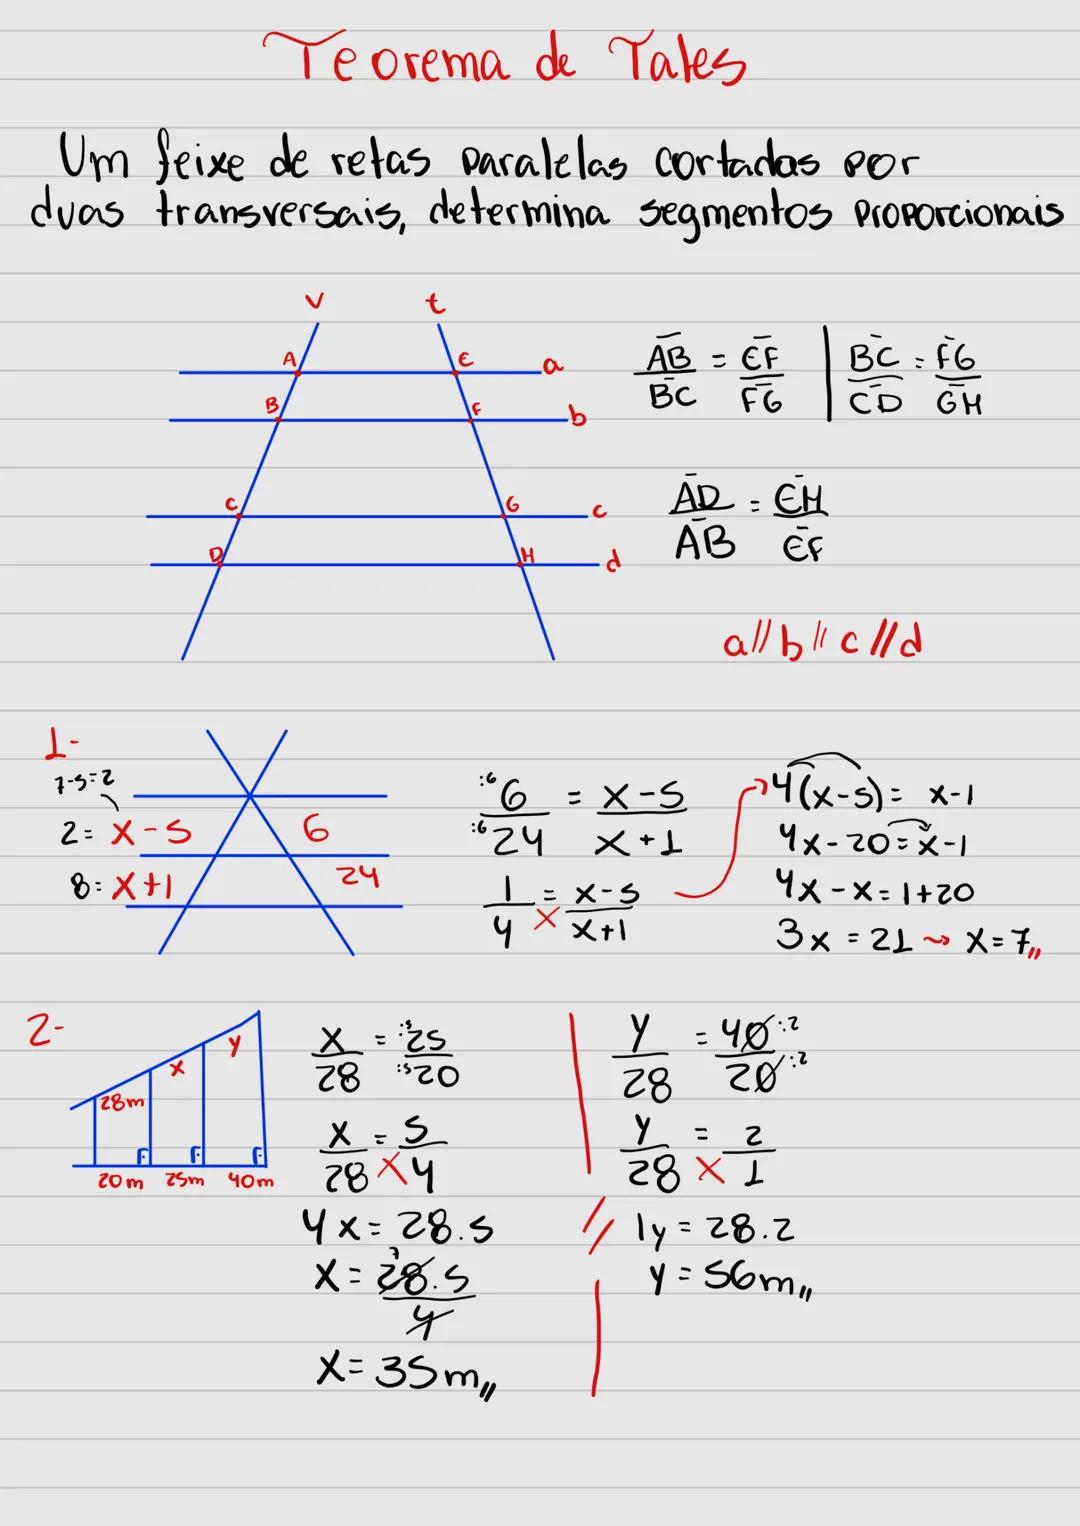 Teorema de Tales
Um feixe de retas paralelas cortadas por
duas transversais, determina segmentos proporcionais
v t
A E a
B F b
C G c
D H d
A̅B̅/B̅C̅ = E̅F̅/F̅G̅ | B̅C̅/C̅D̅ = F̅G̅/G̅H̅
A̅D̅/A̅B̅ = E̅H̅/E̅F̅
a//b//c//d
1-
7-5=2
2= x-5 6
8= x+1 24
:6 6/:6 24 = x-5/x+1
1/4 = x-5/x+1
4(x-5)= x-1
4x-20=x-1
4x-x=1+20
3x=21 → x=7,,
2-
28m x y
20m 25m 40m
x/28 = :5 25/:5 20
x/28 = 5/4
4x=28.5
x= 28.5/4
7
x=35m,,
y/28 = 40:2/20:2
y/28 = 2/1
// 1y=28.2
y=56m,,